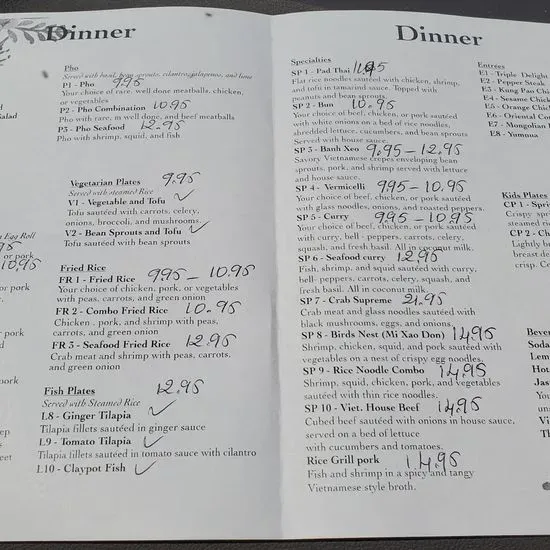 Dinner
Pho
Served with basil, bean sprouts, cilantro, jalapenos, and lime
P1 - Pho 9.95
Your choice of rare, well done meatballs, chicken,
or vegetables
P2 - Pho Combination 10.95
Pho with rare, m well done, and beef meatballs
P3 - Pho Seafood 12.95
Pho with shrimp, squid, and fish
Vegetarian Plates 9.95
Served with steamed Rice
V1 - Vegetable and Tofu ✓
Tofu sautéed with carrots, celery,
onions, broccoli, and mushrooms
V2 - Bean Sprouts and Tofu ✓
Tofu sautéed with bean sprouts
Fried Rice
FR 1 - Fried Rice 995 - 10.95
Your choice of chicken, pork, or vegetables
with peas, carrots, and green onion
FR 2 - Combo Fried Rice 10.95
Chicken, pork, and shrimp with peas,
carrots, and green onion
FR 3 - Seafood Fried Rice 12.95
Crab meat and shrimp with peas, carrots,
and green onion
Fish Plates 12.95
Served with Steamed Rice
L8 - Ginger Tilapia ✓
Tilapia fillets sautéed in ginger sauce
L9 - Tomato Tilapia ✓
Tilapia fillets sautéed in tomato sauce with cilantro
L10 - Claypot Fish ✓
Salad
Egg Roll
or pork
10.95
or pork
pork
Dinner
Specialties
SP 1 - Pad Thai
Flat rice noodles sautéed with chicken, shrimp,
and tofu in tamarind sauce. Topped with
peanuts and bean sprouts
SP 2 - Bun 10.95
Your choice of beef, chicken, or pork sautéed
with white onions on a bed of rice noodles,
shredded lettuce, cucumbers, and bean sprouts
Served with house sauce.
SP 3 - Banh Xeo 9.95 - 12.95
Savory Vietnamese crepes enveloping bean
sprouts, pork, and shrimp served with lettuce
and house sauce.
SP 4 - Vermicelli 995 - 10.95
Your choice of beef, chicken, or pork sautéed
with glass noodles, onions, and roasted peppers.
SP 5 - Curry 995 - 10.95
Your choice of beef, chicken, or pork sautéed
with curry, bell - peppers, carrots, celery,
squash, and fresh basil. All in coconut milk.
SP 6 - Seafood curry 12.95
Fish, shrimp, and squid sautéed with curry,
bell- peppers, carrots, celery, squash, and
fresh basil. All in coconut milk.
SP 7 - Crab Supreme 21.95
Crab meat and glass noodles sautéed with
black mushrooms, eggs, and onions.
SP 8 - Birds Nest (Mi Xao Don) 14.95
Shrimp, chicken, squid, and pork sautéed with
vegetables on a nest of crispy egg noodles.
SP 9 - Rice Noodle Combo 14.95
Shrimp, squid, chicken, pork, and vegetables
sautéed with thin rice noodles.
SP 10 - Viet. House Beef 14.95
Cubed beef sautéed with onions in house sauce,
served on a bed of lettuce
with cucumbers and tomatoes.
Rice Grill pork 14.95
Fish and shrimp in a spicy and tangy
Vietnamese style broth.
Entrées
E1 - Triple Delight
E2 - Pepper Steak
E3 - Kung Pao
E4 - Sesame
E5 - Orange
E6 - Oriental
E7 - Mongolian
E8 - Yumnua
Kids Plates
CP 1 -
Crispy
steamed
CP 2 -
Lightly
breast
crisp.
Soda